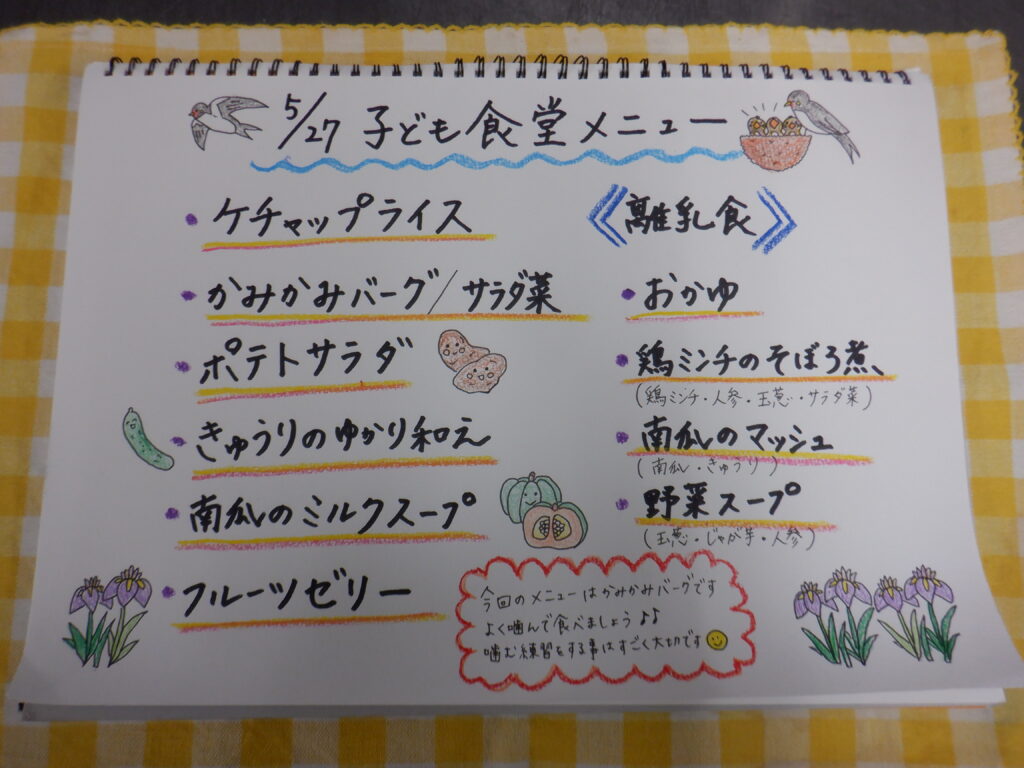 5/27 子ども食堂メニュー
・ケチャップライス
・かみかみバーグ/サラダ菜
・ポテトサラダ
・きゅうりのゆかり和え
・南瓜のミルクスープ
・フルーツゼリー
《離乳食》
・おかゆ
・鶏ミンチのそぼろ煮
(鶏ミンチ・人参・玉葱・サラダ菜)
・南瓜のマッシュ
(南瓜・きゅうり)
・野菜スープ
(玉葱・じゃが芋・人参)
今回のメニューはかみかみバーグです
よく噛んで食べましょう♪♪
噛む練習をする事はすごく大切です